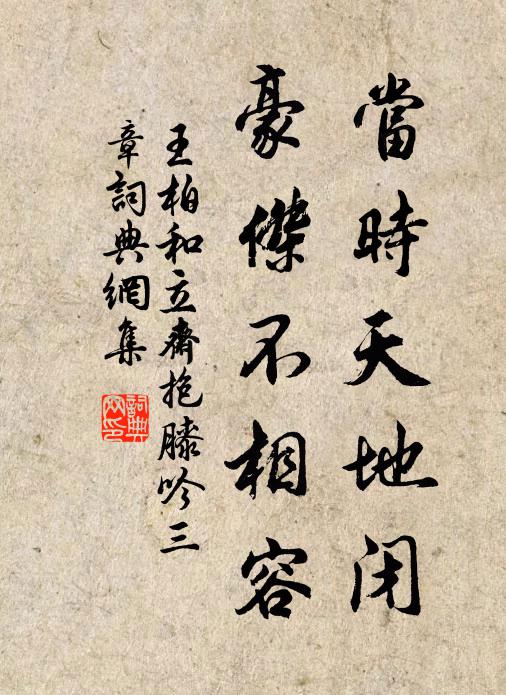 當時天地闭
豪傑不相容
王柏和立齋抱膝吟三
章詞典網集
詞典網印